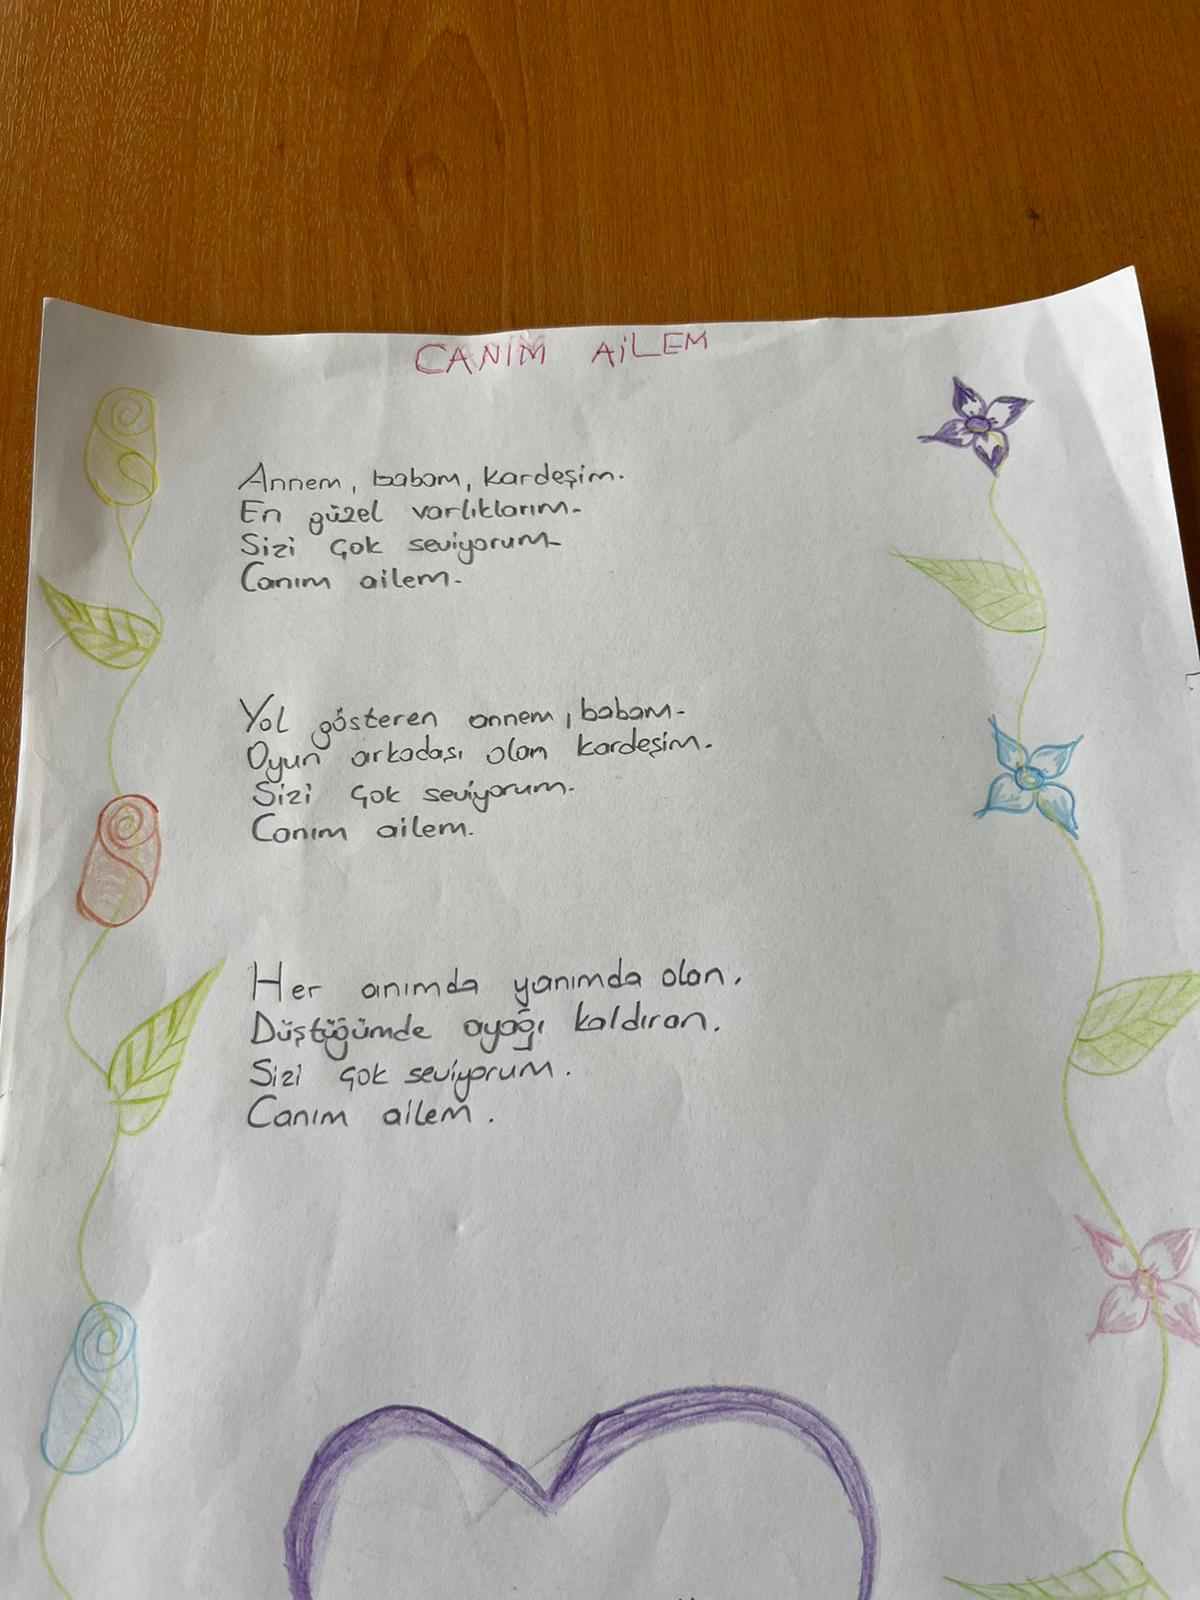 CANIM AİLEM
Annem, babam, kardeşim.
En güzel varlıklarım.
Sizi çok seviyorum
Canım ailem.
Yol gösteren annem, babam.
Oyun arkadaşı olan kardeşim.
Sizi çok seviyorum.
Canım ailem.
Her anımda yanımda olan.
Düştüğümde ayağı kaldıran.
Sizi çok seviyorum.
Canım ailem.